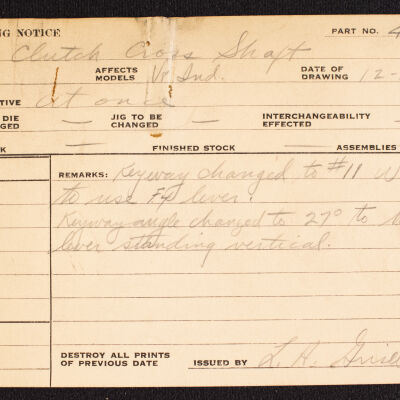 NG NOTICE PART NO. 4
Clutch Cross Shaft
AFFECTS MODELS Vr Ind. DATE OF DRAWING 12-
TIVE At once
DIE GED — JIG TO BE CHANGED — INTERCHANGEABILITY EFFECTED
K — FINISHED STOCK — ASSEMBLIES
REMARKS: Keyway changed to #11
to use F4 lever.
Keyway angle changed to 27° to
lever standing vertical.
DESTROY ALL PRINTS OF PREVIOUS DATE ISSUED BY L. H.